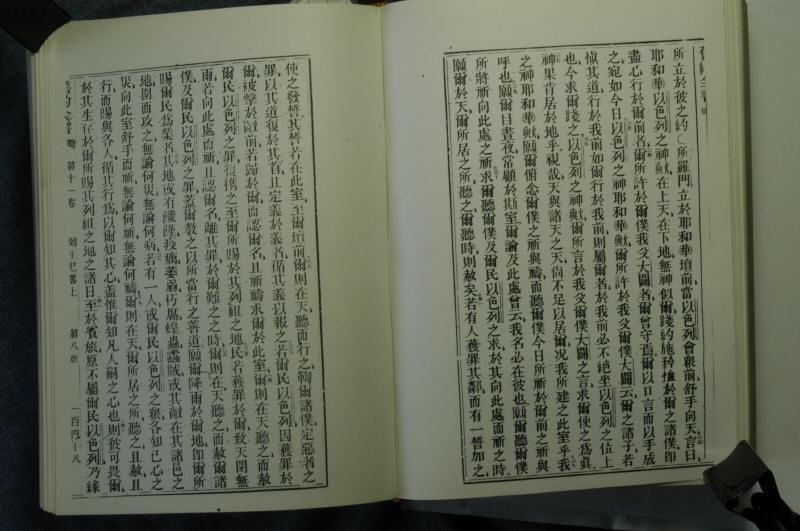 所立於彼之約○所羅門立於耶和華壇前當以色列會衆前舒手向天言曰
耶和華以色列之神歟在上天在下地無神似爾踐約施矜恤於爾之諸僕卽
盡心行於爾前者爾所許於爾僕我父大闢者爾曾守焉爾以口言而以手成
之宛如今日以色列之神歟爾所許於我父爾僕大闢云爾之諸子若
愼其道行於我前如爾行於我前則屬爾者於我前必不絕坐以色列之位上
也今求爾踐之以色列之神耶和華歟爾所言於我父爾僕大闢之言求爾使之爲眞
神果肯居於地乎視哉天與諸天之天尙不足以居爾况我所建之此室乎我
之神耶和華歟願爾俯念爾僕之祈與禱而聽爾僕今日所祈於爾前之祈與
呼也願爾目晝夜常顧於斯室爾論及此處曾云我名必在彼也願爾聽爾僕
所將祈向此處之祈求爾聽爾僕及爾民以色列之求於其向此處而祈之時
願爾於天爾所居之所聽之聽時則赦矣若有人獲罪其鄰而有一誓加之
使之發誓其誓若在此室至爾壇前爾則在天聽而行之鞫爾諸僕定惡者之
罪以其道復於其首且定義者於義者循其義以報之若爾民以色列因獲罪於
爾被擊於敵前若歸於爾而認爾名且祈禱求爾於此室爾則在天聽之而赦
爾民以色列之罪復攜之至爾所賜於其列祖之地若民獲罪於爾致天閉無
雨若向此處而祈且認爾名離其罪於爾難之之時爾則在天聽之而赦爾諸
僕及爾民以色列之罪蓋爾敎之以所當行之善道願爾降雨於爾地卽爾所
賜爾民爲業者其地或有饑饉疫癘萎蔫朽腐蝗蟲蟊賊或其敵在其諸邑之
地圍而攻之無論何災無論何病若有一人或爾民以色列之衆各知己心之
災向此室舒手而祈無論何祈無論何禱爾則在天爾所居之所聽之且赦且
行而賜與各人循其行爲以爾知其心蓋惟爾知凡人嗣之心也則彼可畏爾
於其生存於爾所賜其列祖之地之諸日至於賓旅原不屬爾民以色列乃緣
第十一卷 列王紀畧上 第八章 一百四十八